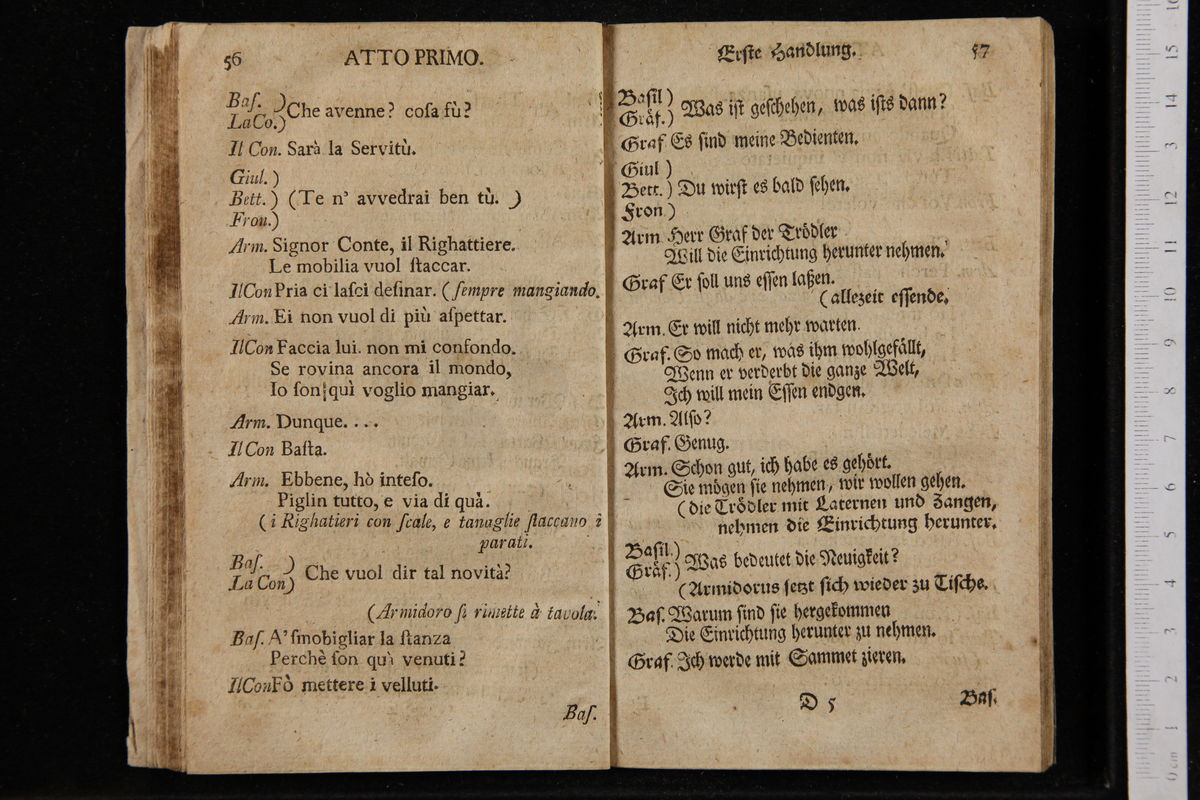 56 ATTO PRIMO.
Baſ. )
LaCo.) Che avenne? coſa fù?
Il Con. Sarà la Servitù.
Giul. )
Bett. ) (Te n' avvedrai ben tù. )
Fron.)
Arm. Signor Conte, il Righattiere.
Le mobilia vuol ſtaccar.
IlCon Pria ci laſci deſinar. (ſempre mangiando.
Arm. Ei non vuol di più aſpettar.
IlCon Faccia lui. non mi confondo.
Se rovina ancora il mondo,
Io ſon quì voglio mangiar.
Arm. Dunque. . . .
Il Con Baſta.
Arm. Ebbene, hò inteſo.
Piglin tutto, e via di quà.
(i Righatieri con ſcale, e tanaglie ſtaccano i
parati.
Baſ. )
La Con) Che vuol dir tal novità?
(Armidoro ſi rimette à tavola.
Baſ. A' ſmobigliar la ſtanza
Perchè ſon quì venuti?
IlCon Fò mettere i velluti.
Baſ.
Erſte Handlung. 57
Baſil )
Gräf.) Was iſt geſchehen, was iſts dann?
Graf Es ſind meine Bedienten.
Giul )
Bett. ) Du wirſt es bald ſehen.
Fron )
Arm Herr Graf der Trödler
Will die Einrichtung herunter nehmen.
Graf Er ſoll uns eſſen laßen.
(allezeit eſſende.
Arm. Er will nicht mehr warten.
Graf. So mach er, was ihm wohlgefällt,
Wenn er verderbt die ganze Welt,
Ich will mein Eſſen endgen.
Arm. Alſo?
Graf. Genug.
Arm. Schon gut, ich habe es gehört.
Sie mögen ſie nehmen, wir wollen gehen.
(die Trödler mit Laternen und Zangen,
nehmen die Einrichtung herunter.
Baſil.)
Gräf.) Was bedeutet die Neuigkeit?
(Armidorus ſetzt ſich wieder zu Tiſche.
Baſ. Warum ſind ſie hergekommen
Die Einrichtung herunter zu nehmen.
Graf. Ich werde mit Sammet zieren.
D 5 Baſ.